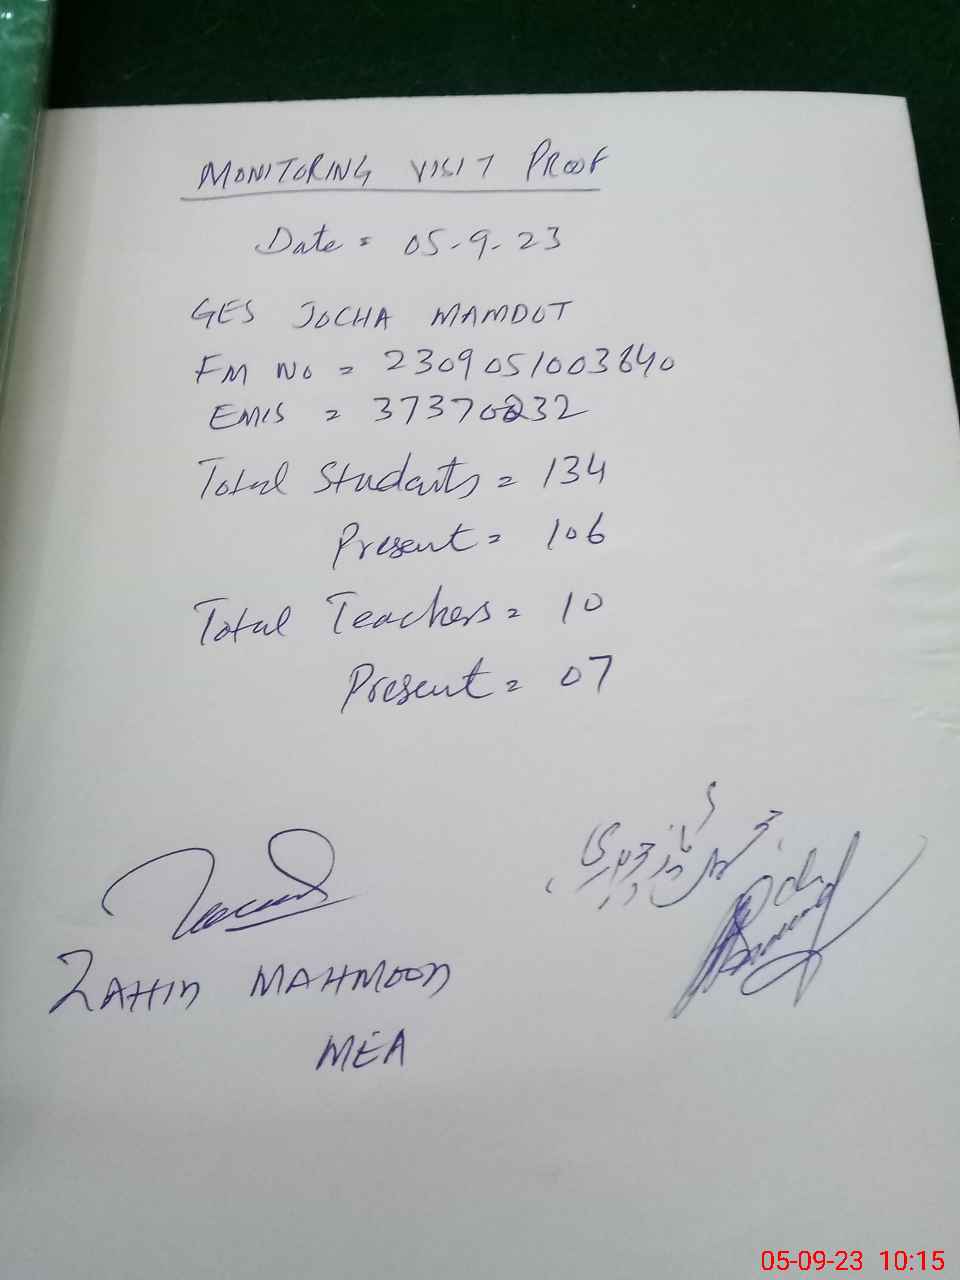 MONITORING VISIT PROOF
Date = 05-9-23
GES JOCHA MAMDOT
FM No = 2309051003640
EMIS = 37370232
Total Students = 134
Present = 106
Total Teachers = 10
Present = 07
ZAHID MAHMOOD
MEA
05-09-23 10:15